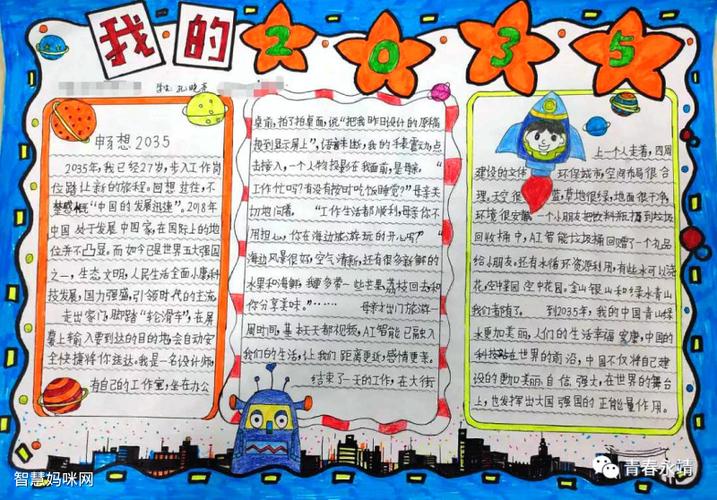 我的2035
畅想2035
2035年,我已经27岁,步入工作岗
位踏上新的旅程。回想过往,不
禁感慨“中国的发展迅速”。2018年,
中国处于发展中国家,在国际上的地
位并不凸显。而如今已是世界五大强国
之一,生态文明,人民生活全面小康科
技发展,国力强盛,引领时代的主流
走出家门,脚踏“轮滑车”,在屏
幕上输入要到达的目的地会自动安
全快捷将你送达。我是一名设计师,
有自己的工作室,坐在办公
桌前,拍了拍桌面,说“把我昨日设计的原稿
投到显示屏上”,语音未出,我的手表震动,点
击接入,一个人物投影在我面前,是母亲。“
工作忙吗?有没有按时吃饭睡觉?”母亲关
切地问着。“工作生活都顺利,母亲你不
用担心,你在海边旅游玩的开心吗?”“
海边风景很好,空气清新,还有很多新鲜的
水果和海鲜,我要多带一些芒果,荔枝回去和
你分享美味。”……母亲才出门旅游一
周时间,基本天天都视频,AI智能已融入
我们的生活,让我们距离更近,感情更亲。
结束了一天的工作,在大街
上一个人走着,四周
建设的文体环保城市,空间布局很合
理。天空很蓝,草地很绿,地面很干净,
环境很安静。一个小朋友把饮料瓶扔到垃圾
回收桶中,AI智能垃圾桶回赠了一个礼品
给小朋友。还有水循环资源利用,有些水可以浇
花,空中菜园空中花园。金山银山和绿水青山
我们都有了。到2035年,我的中国青山绿
水更加美丽,人们的生活幸福安康,中国的
科技站在世界的前沿,中国不仅将自己建
设的更加美丽自信强大,在世界的舞台
上,也发挥出大国强国的正能量作用。
智慧妈咪网
青春永靖